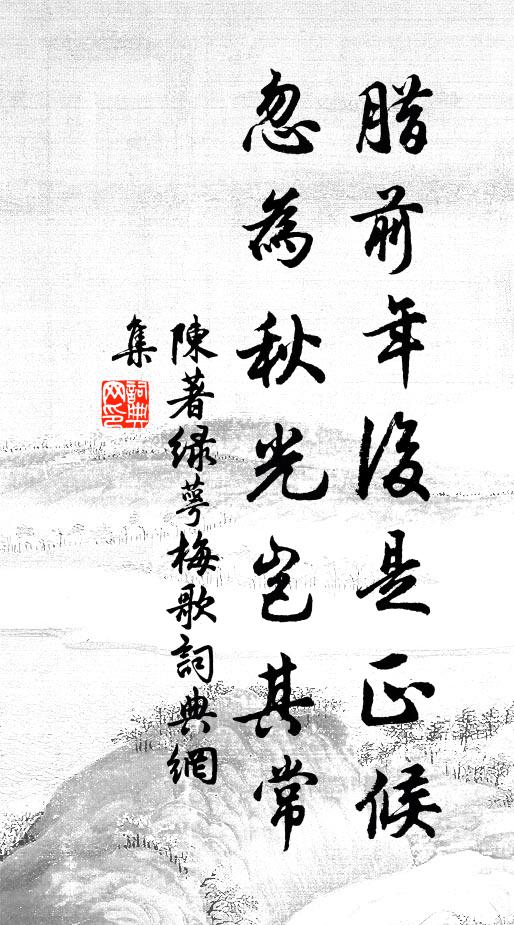 腊前年後是正候
忽為秋光豈其常
陳著緑萼梅歌詞典網
集
詞典網印